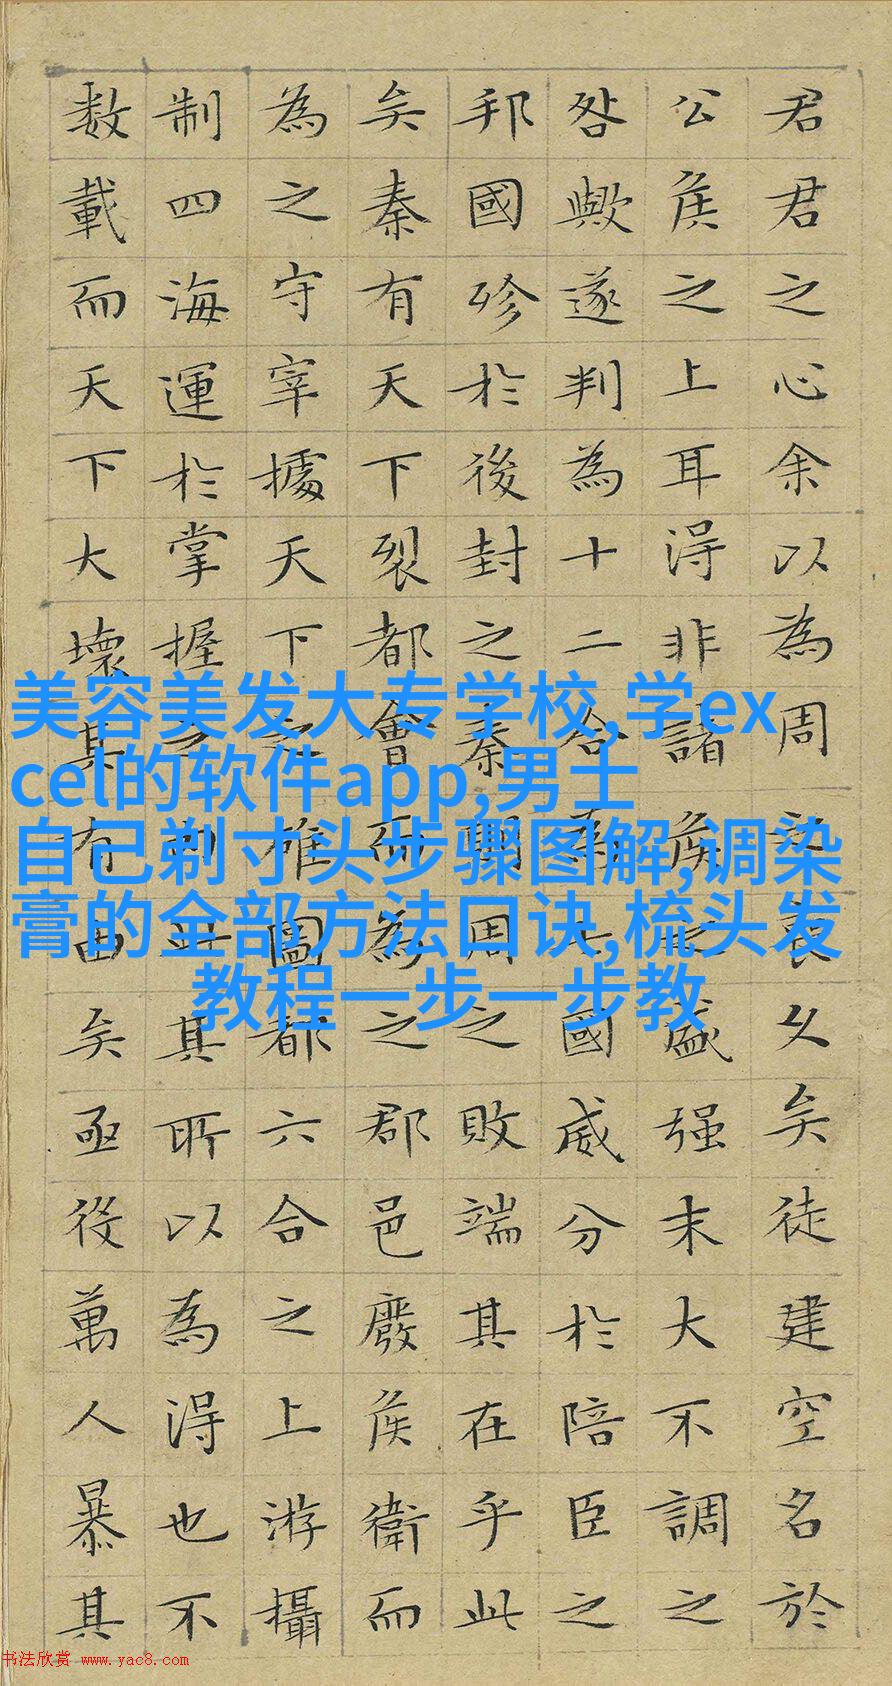 君君之心余以為周之喪乆矣徒建空名於
公侯之上耳得非諸侯之盛强末大不調之
咎歟遂判為十二合為七國威分於陪臣之
邦國殄於後封之秦則周之敗端其在乎此
矣秦有天下裂都會而為之郡邑廢侯衛而
為之守宰據天下之雄圖都六合之上游攝
制四海運於掌握之内此其所以為得也不
数載而天下大壞其有由矣亟役萬人暴其
美容美发大专学校,学ex
cel的软件app,男士
自己剃寸头步骤图解,调染
膏的全部方法口诀,梳头发
教程一步一步教
书法欣赏 www.yac8.com